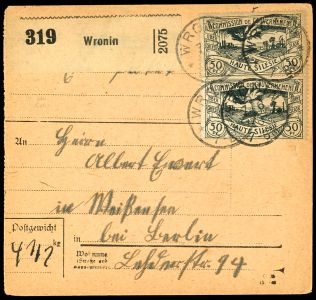 319 Wronin 2075
COMMISSION DE GOUVERNEMENT
50 HAUTE SILESIE 50
COMMISSION DE GOUVERNEMENT
50 HAUTE SILESIE 50
WRO
WRO
An Herrn
Albert Ewert
in Weißensee
in bei Berlin
Postgewicht
kg
Wohnung
(Straße und
Lehderstr. 94